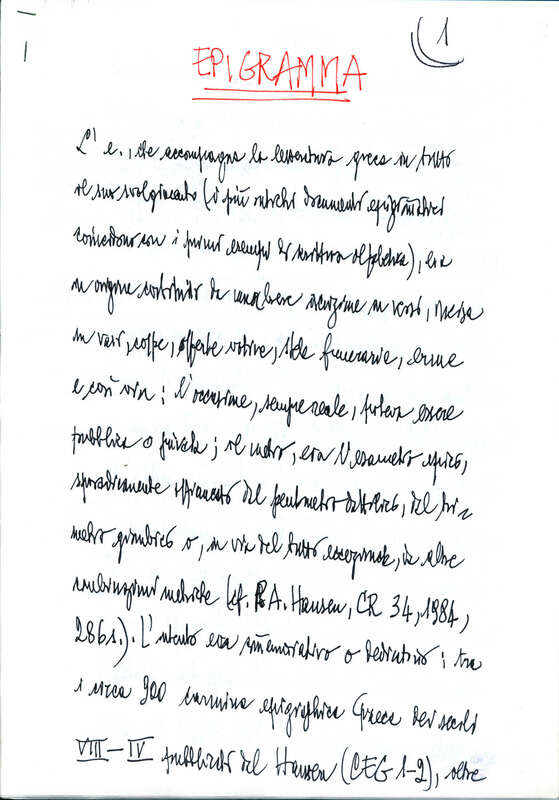 1
EPIGRAMMA
L' e., che accompagna la letteratura greca in tutto
il suo svolgimento (i più antichi documenti epigrafici
coincidono con i primi esempi di scrittura alfabetica), era
in origine costituito da una breve iscrizione in versi, incisa
in vasi, coppe, offerte votive, stele funerarie, erme
e così via; l'occasione, sempre reale, poteva essere
pubblica o privata; il metro, era l'esametro epico,
sporadicamente affiancato dal pentametro dattilico, dal tri-
metro giambico o, in via del tutto eccezionale, da altre
combinazioni metriche (cf. A. Hansen, CR 34, 1984,
286s.). L'intento era commemorativo o dedicatorio: tra
i circa 900 carmina epigraphica Graeca dei secoli
VIII–IV pubblicati dal Hansen (CEG 1-2), oltre